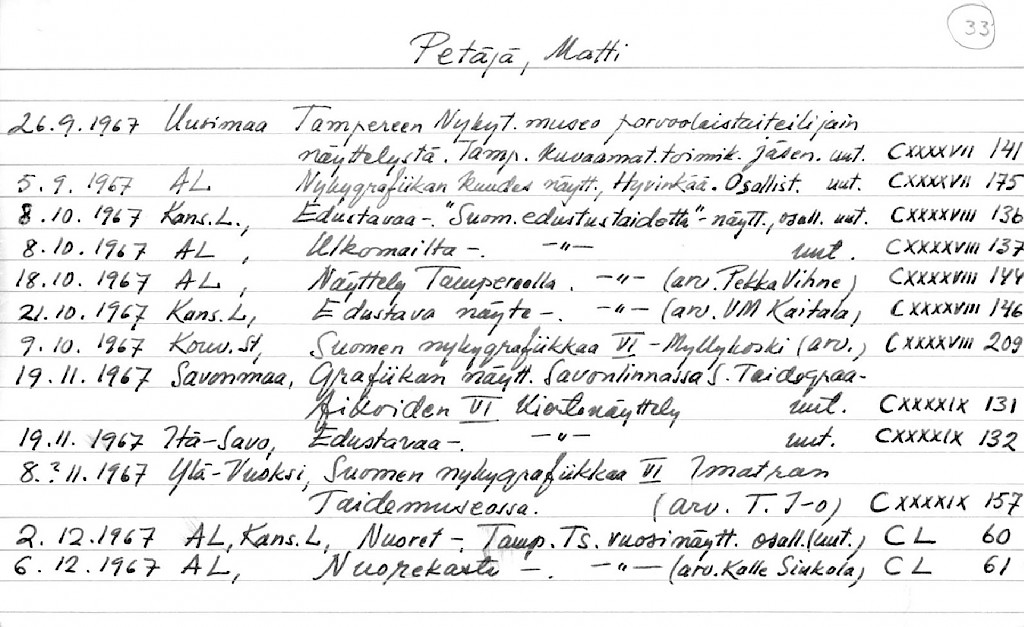 33
Petäjä, Matti
26.9.1967 Uusimaa Tampereen Nykyt. museo porvoolaistaiteilijain
näyttelystä. Tamp. kuvaamat. toimik. jäsen. uut. CXXXXVII 141
5.9.1967 AL Nykygrafiikan kuudes näytt., Hyvinkää. Osallist. uut. CXXXXVII 175
8.10.1967 Kans.L., Edustavaa-. "Suom. edustustaidetta"-näytt., osall. uut. CXXXXVIII 136
8.10.1967 AL, Ulkomailta -. -"- uut. CXXXXVIII 137
18.10.1967 AL, Näyttely Tampereella. -"- (arv. Pekka Vihne) CXXXXVIII 144
21.10.1967 Kans.L, Edustava näyte-. -"- (arv. VM Kaitala) CXXXXVIII 146
9.10.1967 Kouv.st, Suomen nykygrafiikkaa VI - Myllykoski (arv.) CXXXXVIII 209
19.11.1967 Savonmaa, Grafiikan näytt. Savonlinnassa S. Taidegraa-
fikoiden VI Kiertonäyttely uut. CXXXXIX 131
19.11.1967 Itä-Savo, Edustavaa-. -"- uut. CXXXXIX 132
8.?11.1967 Ylä-Vuoksi, Suomen nykygrafiikkaa VI Imatran
Taidemuseossa. (arv. T. I-o) CXXXXIX 157
2.12.1967 AL, Kans.L, Nuoret -. Tamp. Ts. vuosinäytt. osall. (uut.) CL 60
6.12.1967 AL, -. -"- (arv. Kalle Sinkola) CL 61